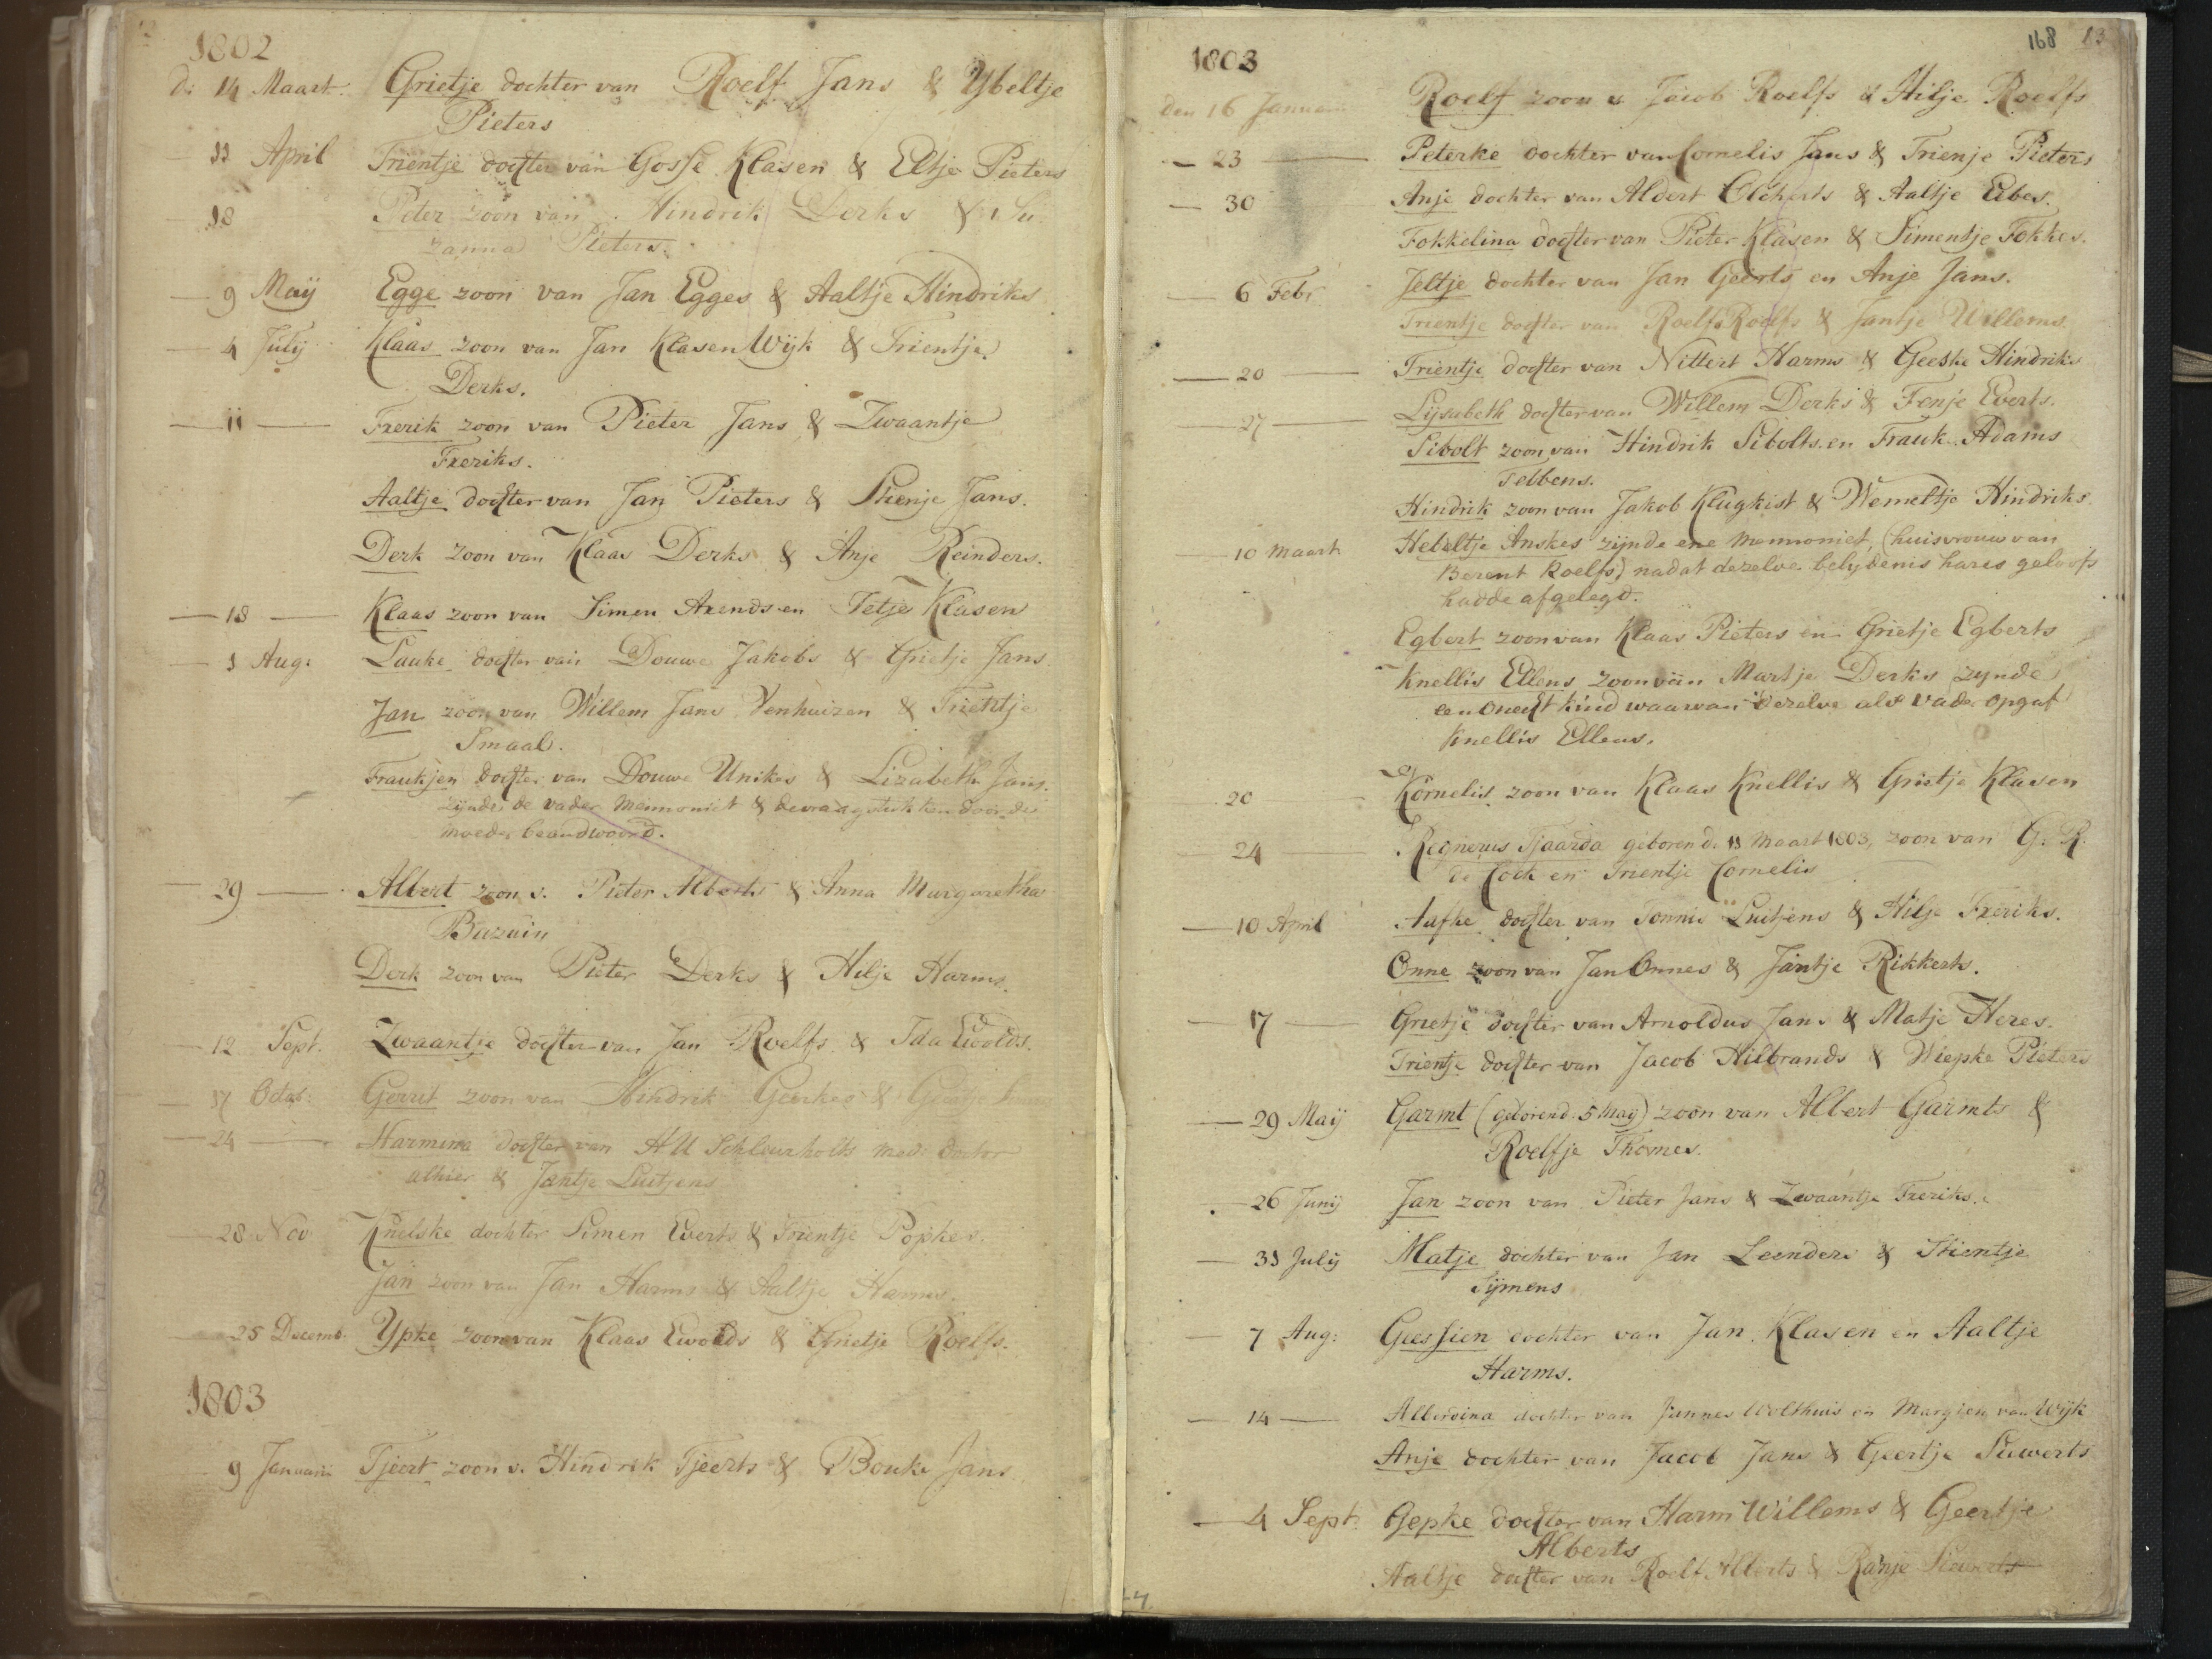 1802
d: 14 Maart. Grietje dochter van Roelf Jans & Ybeltje
Pieters
11 April Trientje dochter van Gosse Klasen & Eltje Pieters
18 Peter zoon van Hindrik Derks & Su-
zanna Pieters.
9 Maij Egge zoon van Jan Egges & Aaltje Hindriks
4 Julij Klaas zoon van Jan Klasen Wijk & Trientje
Derks.
11 Frerik zoon van Pieter Jans & Zwaantje
Freriks.
Aaltje dochter van Jan Pieters & Stienje Jans.
Derk zoon van Klaas Derks & Anje Reinders.
18 Klaas zoon van Simen Arends en Tetje Klasen
1 Aug: Lauke dochter van Douwe Jakobs & Grietje Jans
Jan zoon van Willem Jans Venhuizen & Trientje
Smaal.
Fraukjen dochter van Douwe Unikes & Lizabeth Jans.
zijnde de vader Mennoniet & de vraagstukken door de
moeder beandwoord.
29 Albert zoon v. Pieter Alberts & Anna Margaretha
Bazuin
Derk zoon van Pieter Derks & Hilje Harms.
12 Sept. Zwaantje dochter van Jan Roelfs & Ida Ewolds.
17 Octob: Gerrit zoon van Hindrik Geerkes &
24 Harmina dochter van H U Schleurholts med: doctor
alhier & Jantje Luitjens
28 Nov Knelske dochter Simen Everts & Trientje Popkes.
Jan zoon van Jan Harms & Aaltje Harms.
25 Decemb. Ypke zoon van Klaas Ewolds & Grietje Roelfs.
1803
9 Januari Tjeert zoon v. Hindrik Tjeerts & Bouke Jans
168 83
1803
den 16 Januari Roelf zoon v Jacob Roelfs & Hilje Roelfs
23 Peterke dochter van Cornelis Jans & Trienje Pieters
30 Anje dochter van Aldert Elcherts & Aaltje Eibes.
Fokkelina dochter van Pieter Klasen & Simentje Fokkes.
6 Febr Jeltje dochter van Jan Geerts en Anje Jans.
Trientje dochter van Roelf Roelfs & Jantje Willems
20 Trientje dochter van Nittert Harms & Geeske Hindriks
27 Lijsabeth dochter van Willem Derks & Fenje Everts.
Sibolt zoon van Hindrik Sibolts en Frauk Adams
Tebbens.
Hindrik zoon van Jakob Klugkist & Wemeltje Hindriks
10 Maart Hebeltje Anskes zijnde ene Mennoniet, (huisvrouw van
Berent Roelfs) nadat dezelve belijdenis hares geloofs
hadde afgelegd.
Egbert zoon van Klaas Pieters en Grietje Egberts
Knellis Ellens zoon van Martje Derks zynde
een onecht kind waarvan dezelve als vader opgaf
Knellis Ellens.
20 Kornelis zoon van Klaas Knellis & Grietje Klasen
24 Regnerus Tjaarda geboren d. 11 Maart 1803, zoon van G. R.
de Cock en Trientje Cornelis
10 April Aafke dochter van Tonnis Luitjens & Hilje Freriks.
Onne zoon van Jan Onnes & Jantje Rikkerts.
17 Grietje dochter van Arnoldus Jans & Matje Heres.
Trientje dochter van Jacob Hilbrands & Wiepke Pieters
29 Maij Garmt (geboren d. 5 Maij) zoon van Albert Garmts &
Roelfje Thomes.
26 Junij Jan zoon van Pieter Jans & Zwaantje Freriks.
31 Julij Matje dochter van Jan Leenders & Stientje
Sijmens
7 Aug: Geessien dochter van Jan Klasen en Aaltje
Harms.
14 Alberdina dochter van Jannes Wolthuis en Margien van Wijk
Anje dochter van Jacob Jans & Geertje Siewerts
4 Sept. Gepke dochter van Harm Willems & Geertje
Alberts
Aaltje dochter van Roelf Alberts & Ranje Siewerts